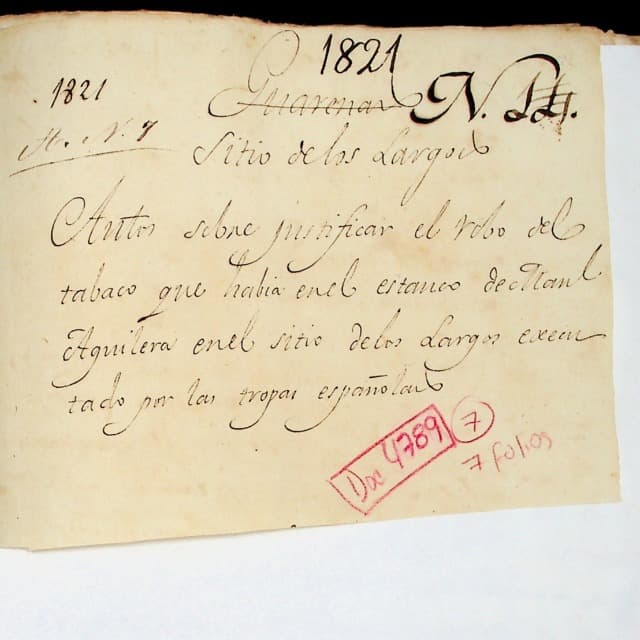 1821
1821
Guarenas N. 14.
H. N. 7
Sitio de los Largos
Autos sobre justificar el robo del
tabaco que habia en el estanco de Manl
Aguilera en el sitio de los Largos execu
tado por las tropas españolas
Doc 4789 7
7 folios